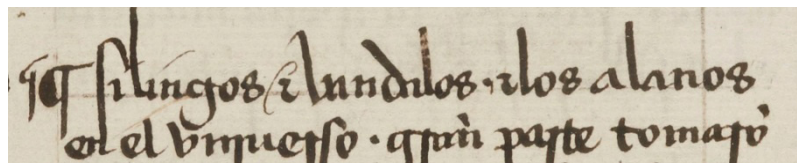 ¶ silingos ⁊ lundilos · ⁊ los alanos
en el vniuerso · grãn parte tomarõ